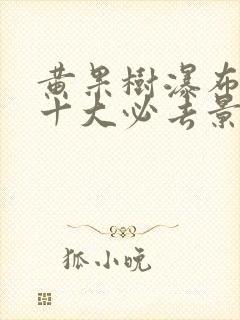 黄果樹瀑布
十大必去景
狐小晥